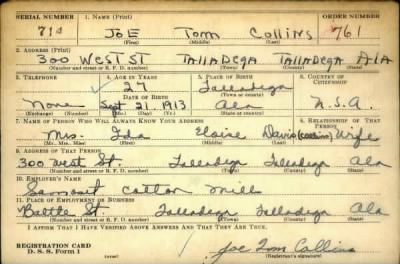 SERIAL NUMBER 1. NAME (Print) ORDER NUMBER
JOE Tom Collins 761
(First) (Middle) (Last)
2. ADDRESS (Print)
300 West St Talladega Talladega Ala
(Number and street or R. F. D. number) (Town) (County) (State)
3. TELEPHONE 4. AGE IN YEARS 5. PLACE OF BIRTH 6. COUNTRY OF CITIZENSHIP
27 Talladega
DATE OF BIRTH (Town or county)
None Sept 21, 1913 Ala U.S.A.
(Exchange) (Number) (Mo.) (Day) (Yr.) (State or country)
7. NAME OF PERSON WHO WILL ALWAYS KNOW YOUR ADDRESS 8. RELATIONSHIP OF THAT PERSON
Mrs. Ida Davis (Collins) Wife
(Mr., Mrs., Miss) (First) (Middle) (Last)
9. ADDRESS OF THAT PERSON
300 West St. Talladega Talladega Ala
(Number and street or R. F. D. number) (Town) (County) (State)
10. EMPLOYER'S NAME
Cotton Mills
11. PLACE OF EMPLOYMENT OR BUSINESS
Battle St. Talladega Talladega Ala
(Number and street or R. F. D. number) (Town) (County) (State)
I AFFIRM THAT I HAVE VERIFIED ABOVE ANSWERS AND THAT THEY ARE TRUE.
REGISTRATION CARD
D. S. S. Form 1 Joe Tom Collins
(Registrant's signature)